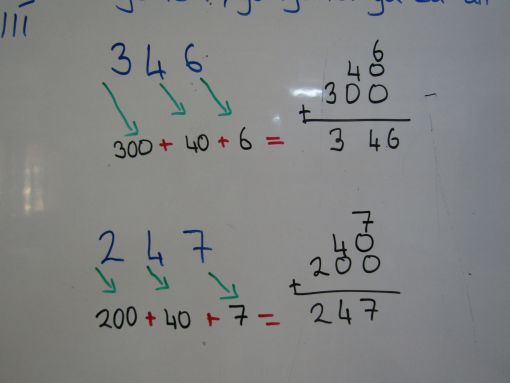 3 4 6
300 + 40 + 6 =
6
40
300
+
3 46
2 4 7
200 + 40 + 7 =
7
40
200
+
247